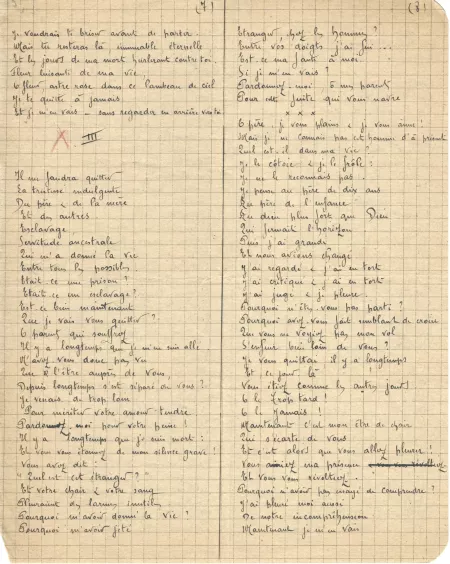 (7)
Je voudrais te briser avant de partir.
Mais tu resteras là immuable éternelle
Et les jours de ma mort hurlaront contre toi.
Fleur luisante de ma vie
O fleur, astre rose dans ce lambeau de ciel
Je te quitte à jamais
Et je m'en vais - sans regarder en arrière
X III
Il me faudra quitter
La tristesse indulgente
Du père & de la mère
Et des autres
Esclavage
Servitude ancestrale
Qui m'a donné la vie
Entre tous les possibles
Etait-ce une prison
Etait-ce un esclavage?
Est-ce bien maintenant
Que je vais vous quitter?
O parents qui souffrez
Il y a longtemps que je m'en suis allé
N'avez-vous donc pas vu
Qu'à l'être auprès de vous
Depuis longtemps s'est séparé de vous?
Je venais de trop loin
Pour mériter votre amour tendre
Pardonnez-moi pour votre peine!
Il y a longtemps que je suis mort:
Et vous vous étonnez de mon silence grave!
Vous avez dit:
"Quel est cet étranger?"
Et votre chair & votre sang
Pleuraient des larmes inutiles
Pourquoi m'avoir donné la vie?
Pourquoi m'avoir jeté
(8)
Etranger, chez les hommes?
Entre vos doigts j'ai fui...
Est-ce ma faute à moi
Si je m'en vais?
Pardonnez-moi, ô mes parents
Pour cette fuite qui vous navre
x x x
O père, je vous plains & je vous aime!
Mais je ne connais pas cet homme d'à présent
Quel est-il dans ma vie?
Je le côtoie & je le frôle:
Je ne le reconnais pas.
Je pense au père de dix ans
Au père de l'enfance
Au dieu plus fort que Dieu
Qui fermait l'horizon
Puis j'ai grandi
Et nous avions changé
J'ai regardé & j'ai eu tort
J'ai critiqué & j'ai eu tort
J'ai jugé & je pleure!
Pourquoi n'êtes-vous pas parti?
Pourquoi avez-vous fait semblant de croire
Que vous ne voyiez pas mon vol
S'enfuir bien loin de vous?
Je vous quittai il y a longtemps
Et ce jour-là
Vous étiez comme les autres jours!
O le trop tard!
O le Jamais!
Maintenant c'est mon être de chair
Qui s'écarte de vous
Et c'est alors que vous allez pleurer!
Vous aimiez ma présence
Et vous vous révoltez.
Pourquoi n'avoir pas essayé de comprendre?
J'ai pleuré moi aussi
De notre incompréhension
Maintenant je m'en vais